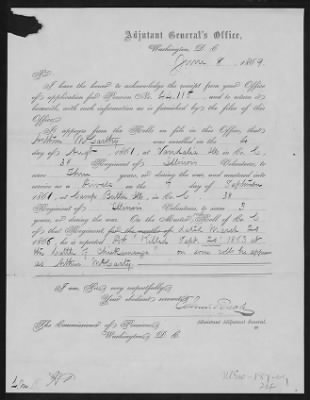 Adjutant General's Office,
Washington, D. C.
June 8, 1869
Sir:
I have the honor to acknowledge the receipt from your Office
of application for Pension No. 115, and to return it
herewith, with such information as is furnished by the files of this
Office.
It appears from the Rolls on file in this Office, that
Arthur McCarthy was enrolled on the
day of 1861, at Vandalia Ills in Co. C,
38 Regiment of Illinois Volunteers, to
serve years, or during the war, and mustered into
service as a Private on the day of September
1861, at Camp Butler Ills, in Co. C, 38
Regiment of Illinois Volunteers, to serve 3
years, or during the war. On the Muster Roll of Co. C
of that Regiment, for the months of
186, he is reported Pvt "Killed Sept. 20, 1863 at
the battle of Chickamauga" on some rolls he appears
as Arthur McCarty
I am, Sir, very respectfully,
Your obedient servant,
Assistant Adjutant General.
The Commissioner of Pensions,
Washington, D. C.